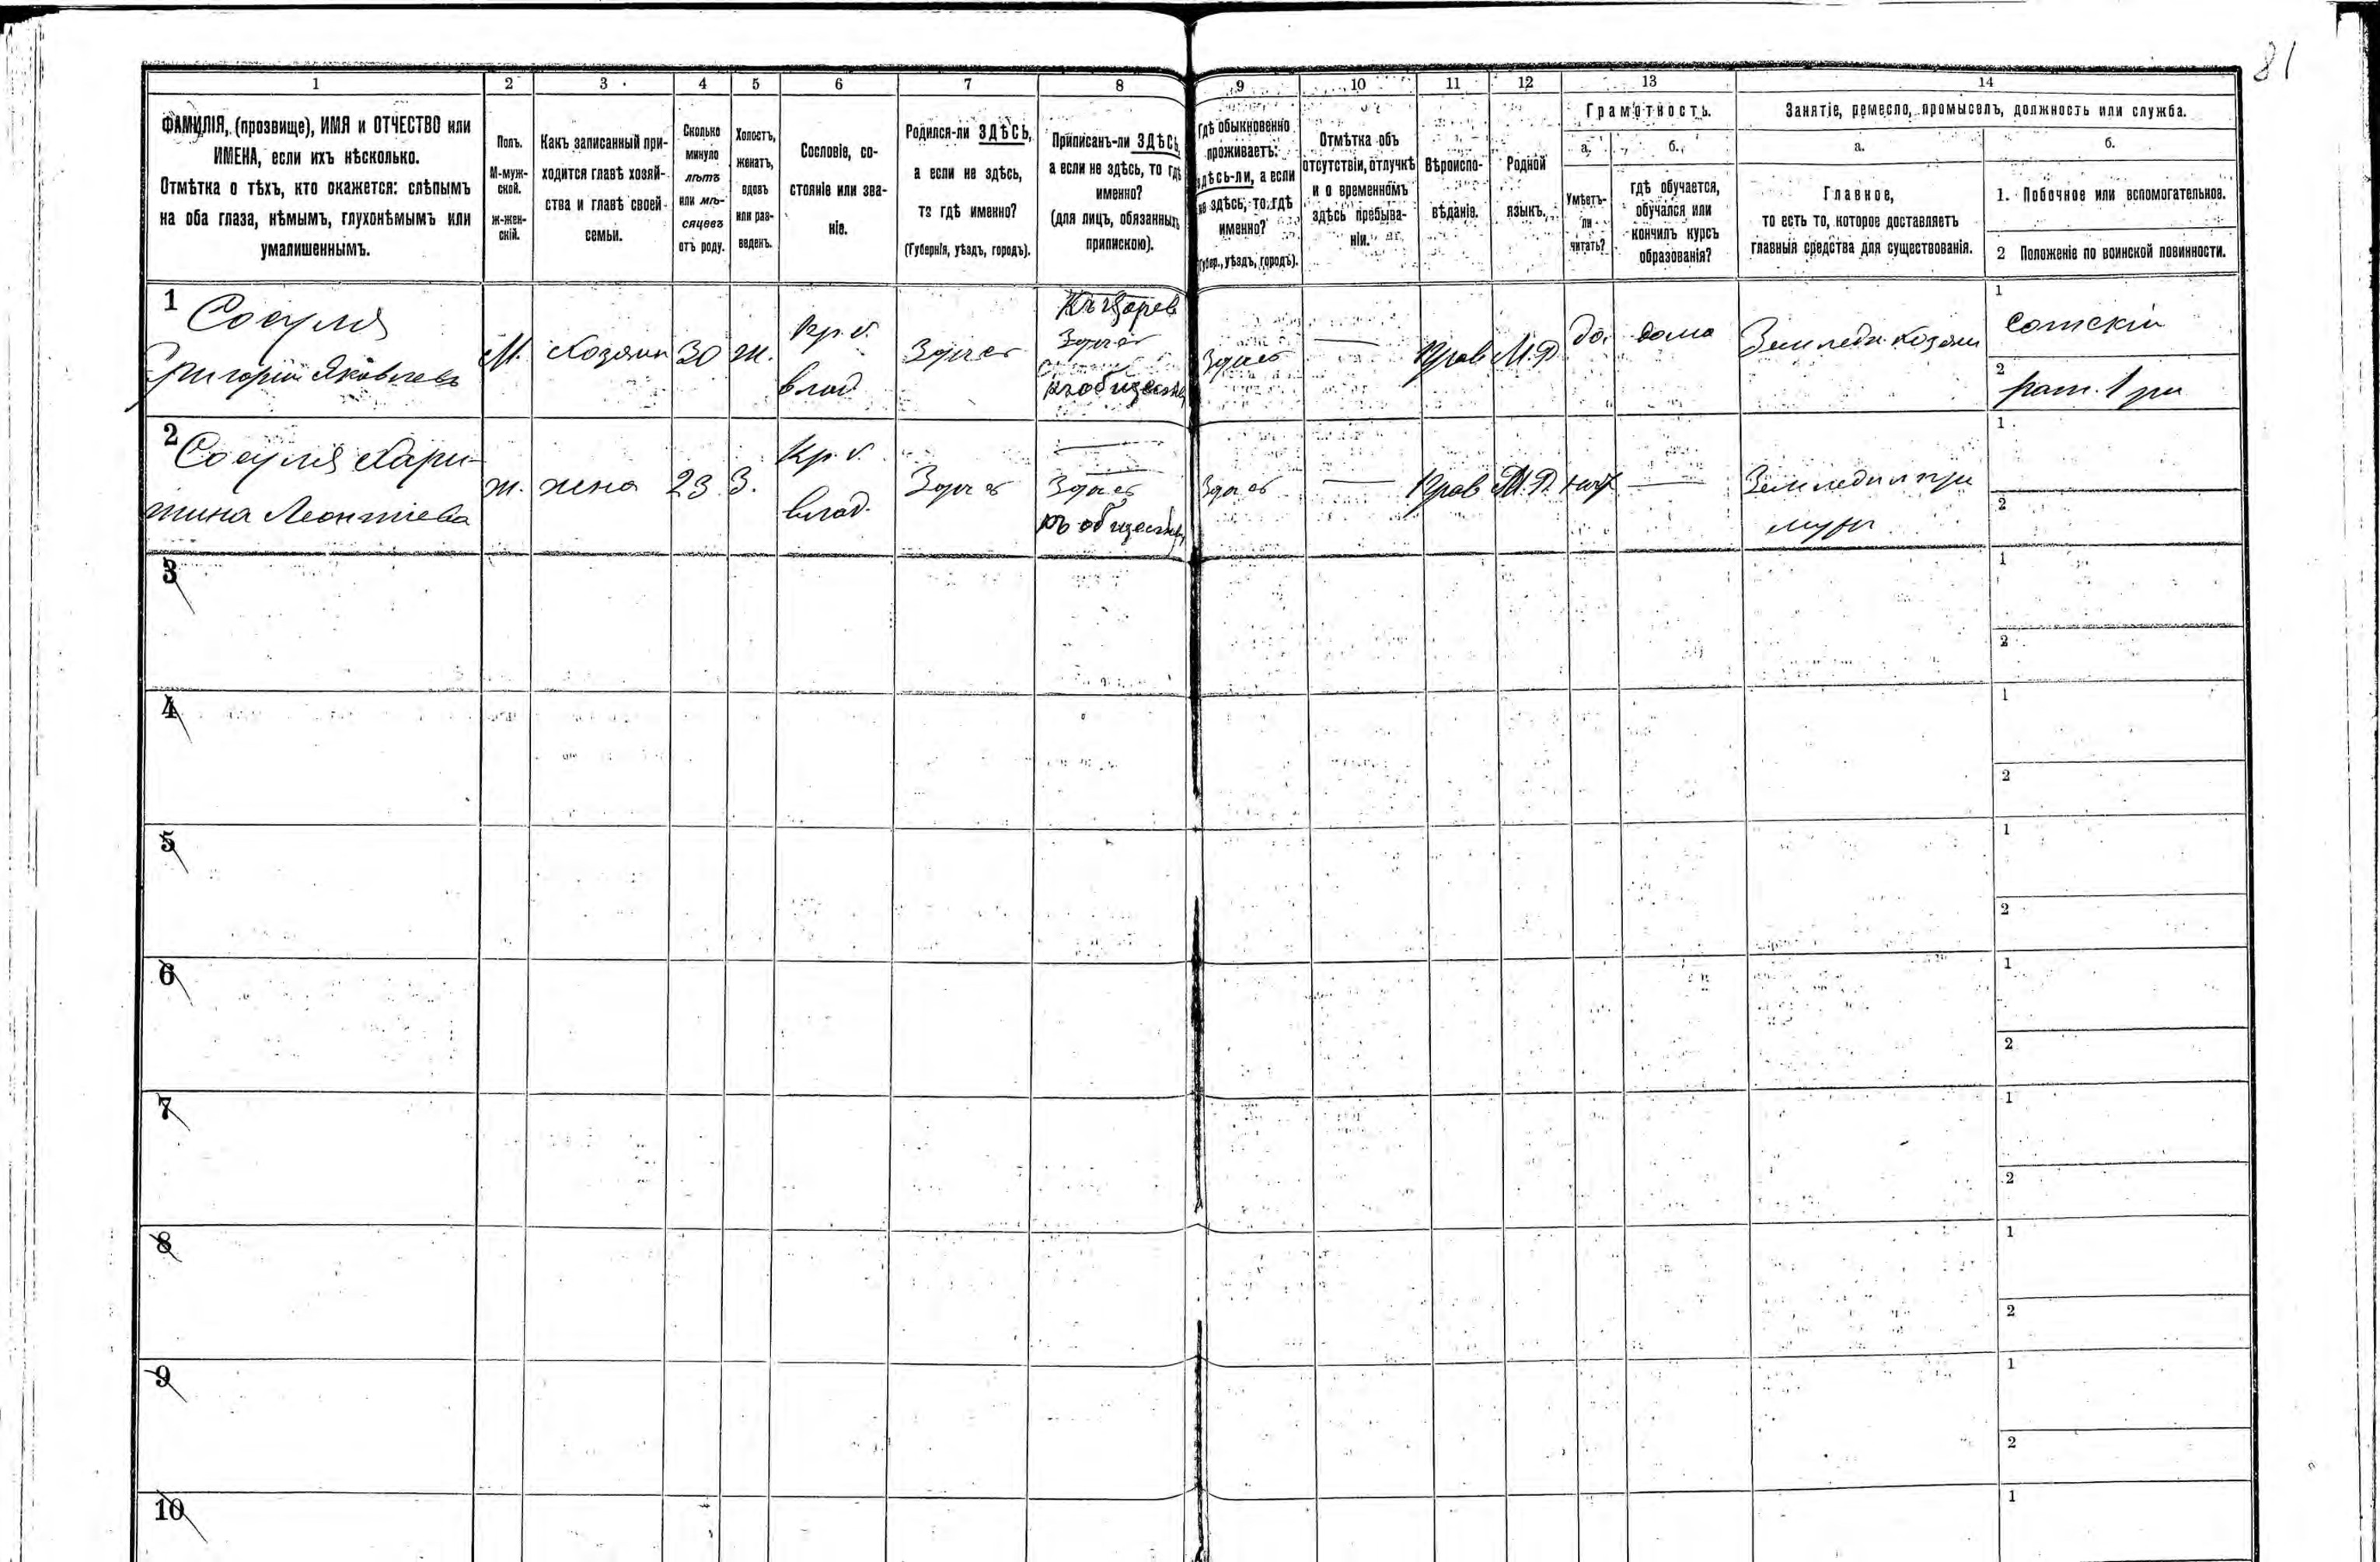 81
1 2 3 4 5 6 7 8 9 10 11 12 13 14
ФАМИЛІЯ, (прозвище), ИМЯ и ОТЧЕСТВО или
ИМЕНА, если ихъ нѣсколько.
Отмѣтка о тѣхъ, кто окажется: слѣпымъ
на оба глаза, нѣмымъ, глухонѣмымъ или
умалишеннымъ.
Полъ.
М-муж-
ской.
ж-жен-
скій.
Какъ записанный при-
ходится главѣ хозяй-
ства и главѣ своей
семьи.
Сколько
минуло
лѣтъ
или мѣ-
сяцевъ
отъ роду.
Холостъ,
женатъ,
вдовъ
или раз-
веденъ.
Сословіе, со-
стояніе или зва-
ніе.
Родился-ли ЗДѢСЬ,
а если не здѣсь,
то гдѣ именно?
(Губернія, уѣздъ, городъ).
Приписанъ-ли ЗДѢСЬ,
а если не здѣсь, то гдѣ
именно?
(для лицъ, обязанныхъ
припискою).
Гдѣ обыкновенно
проживаетъ:
здѣсь-ли, а если
не здѣсь, то гдѣ
именно?
(Губер., уѣздъ, городъ).
Отмѣтка объ
отсутствіи, отлучкѣ
и о временномъ
здѣсь пребыва-
ніи.
Вѣроиспо-
вѣданіе.
Родной
языкъ.
Грамотность.
а.
Умѣетъ-
ли
читать?
б.
гдѣ обучается,
обучался или
кончилъ курсъ
образованія?
Занятіе, ремесло, промыселъ, должность или служба.
а.
Главное,
то есть то, которое доставляетъ
главныя средства для существованія.
б.
1. Побочное или вспомогательное.
2 Положеніе по воинской повинности.
1
Сосуля
Григорій Яковлевъ
М.
Хозяин
30
ж.
кр. б.
влад
Здесь
Здесь
къ обществу
Здесь
—
Прав
М.Р.
да
дома
Земледел. хозяин
1
сотскій
2
рат. 1 ра
2
Сосуля Хари-
тина Леонтіева
ж.
жена
23
З.
Кр. б.
влад.
Здесь
—
Здесь
къ обществу
Здесь
—
Прав
М.Р.
нет
—
Земледел при
муже
1
2
3
1
2
4
1
2
5
1
2
6
1
2
7
1
2
8
1
2
9
1
2
10
1